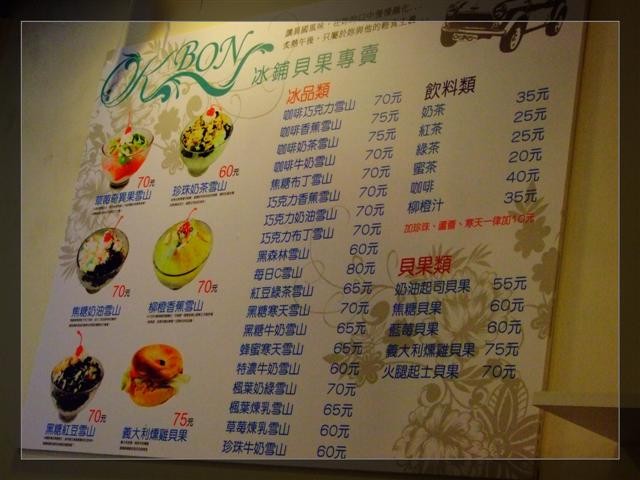 OK BON
冰鋪貝果專賣
草莓奇異果雪山 70元
珍珠奶茶雪山 60元
焦糖奶油雪山 70元
柳橙香蕉雪山 70元
黑糖紅豆雪山 70元
義大利燻雞貝果 75元
冰品類
咖啡巧克力雪山 70元
咖啡香蕉雪山 75元
咖啡奶茶雪山 75元
咖啡牛奶雪山 70元
焦糖布丁雪山 70元
巧克力香蕉雪山 70元
巧克力奶油雪山 70元
巧克力布丁雪山 70元
黑森林雪山 60元
每日C雪山 80元
紅豆綠茶雪山 65元
黑糖寒天雪山 70元
黑糖牛奶雪山 65元
蜂蜜寒天雪山 65元
特濃牛奶雪山 60元
楓葉奶綠雪山 70元
楓葉煉乳雪山 65元
草莓煉乳雪山 60元
珍珠牛奶雪山 60元
飲料類
奶茶 35元
紅茶 25元
綠茶 25元
蜜茶 20元
咖啡 40元
柳橙汁 35元
加珍珠、蘆薈、寒天一律加10元
貝果類
奶油起司貝果 55元
焦糖貝果 60元
藍莓貝果 60元
義大利燻雞貝果 75元
火腿起士貝果 70元